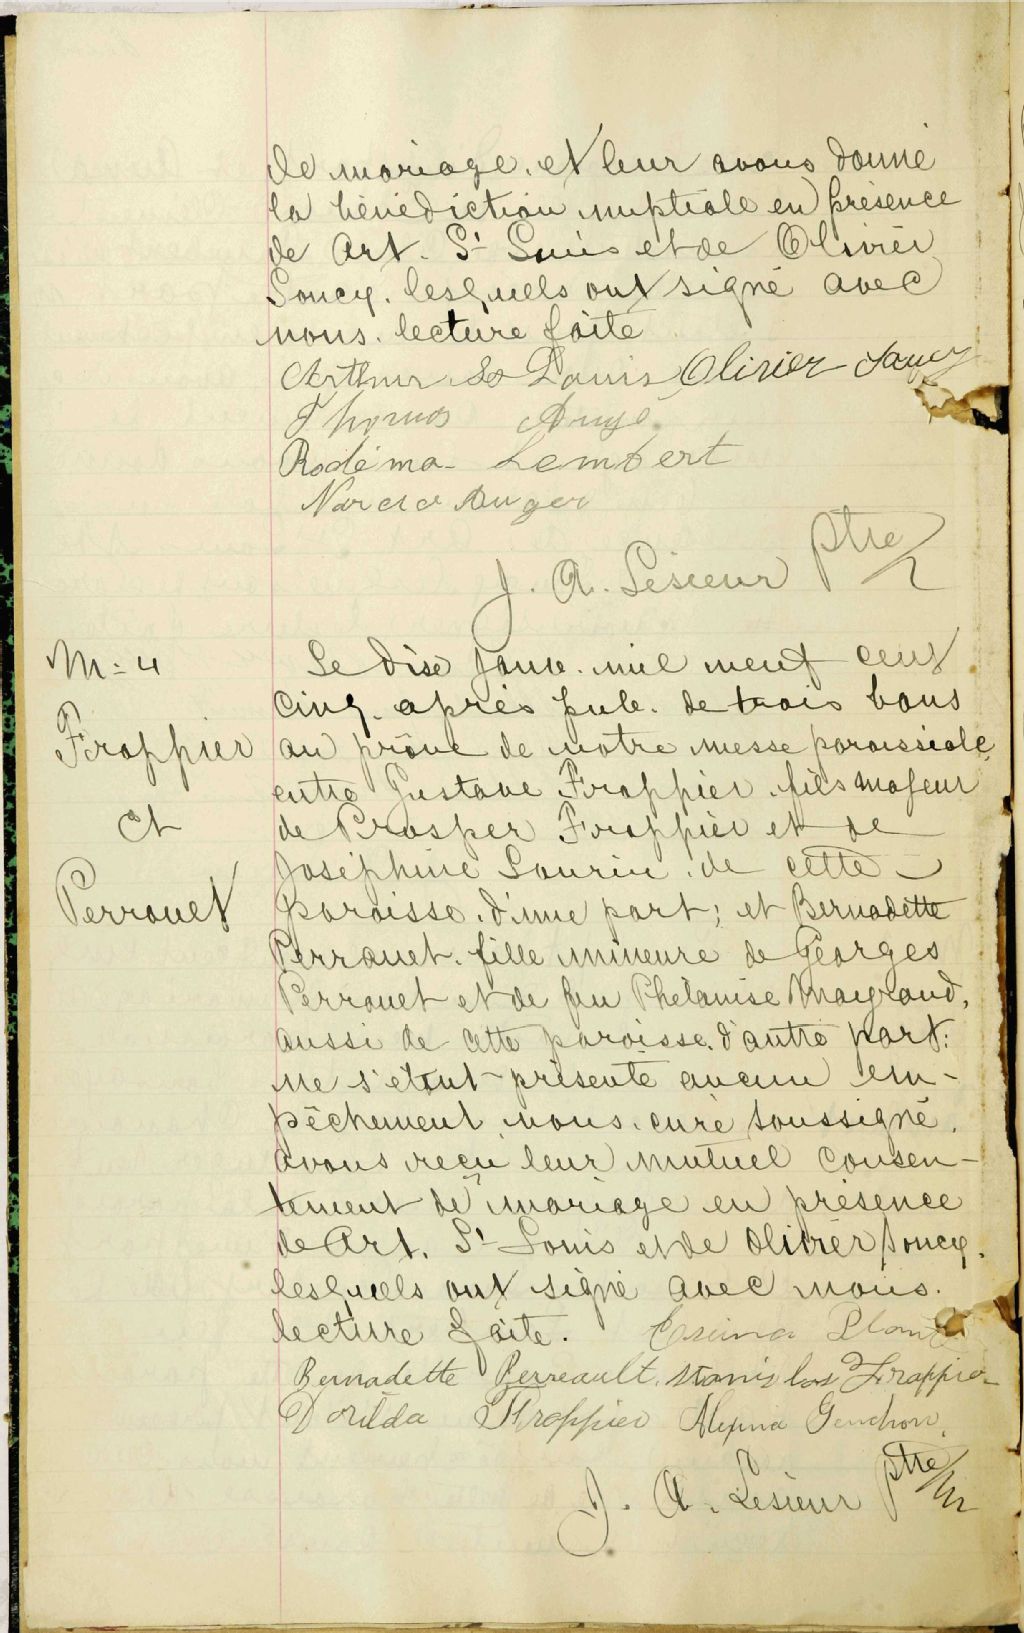 de mariage. et leur avons donné
la bénédiction nuptiale en présence
de Art. St Louis et de Olivier
Soucy. lesquels ont signé avec
nous. lecture faite
Arthur St Louis Olivier Soucy
Thomas Augé
Rodéma Lambert
Auger
J. A. Lesieur ptre
M = 4
Frappier
et
Perrouet
Le dise janv. mil neuf cent
cinq. après pub. de trois bans
au prône de notre messe paroissiale
entre Gustave Frappier. fils majeur
de Prosper Frappier et de
Joséphine Laurin. de cette
paroisse. d'une part; et Bernadette
Perrouet. fille mineure de Georges
Perrouet et de feu Phelanise Maygrand,
aussi de cette paroisse. d'autre part:
ne s'étant présenté aucun em-
pêchement nous. curé soussigné.
avons reçu leur mutuel consen-
tement de mariage en présence
de Art. St Louis et de Olivier Soucy.
lesquels ont signé avec nous.
lecture faite.
Bernadette Perreault. Stanislas Frappier
Dorilda Frappier Alexina Gendron.
J. A. Lesieur ptre